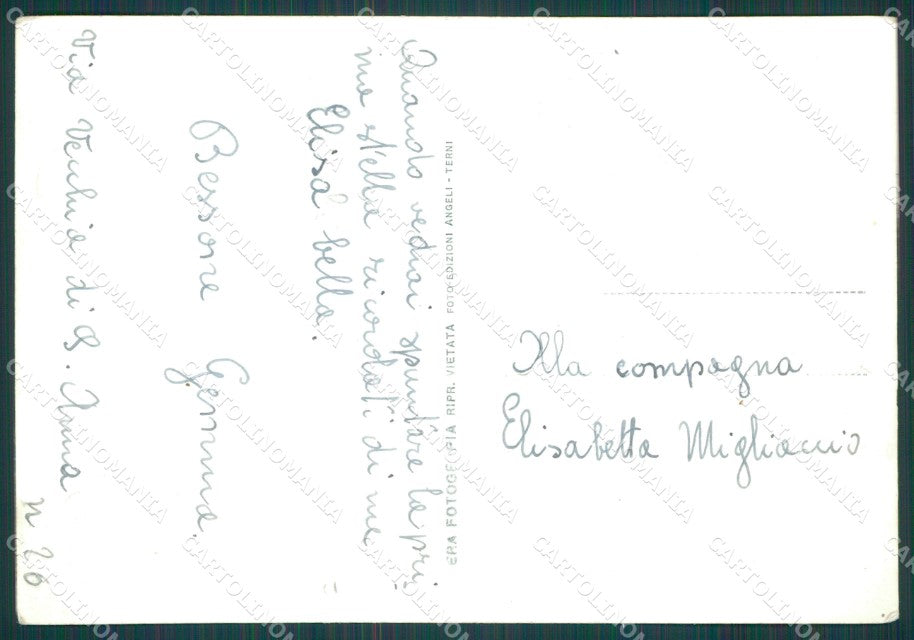 Quando vedrai spuntare la pri-
ma stella ricordati di me
Elisa bella.
Bessone Gemma.
Via Vecchia di S. Anna
n 26
ERA FOTOGRAFIA RIPR. VIETATA FOTO EDIZIONI ANGELI - TERNI
Alla compagna
Elisabetta Migliaccio
CARTOLINOMANIA